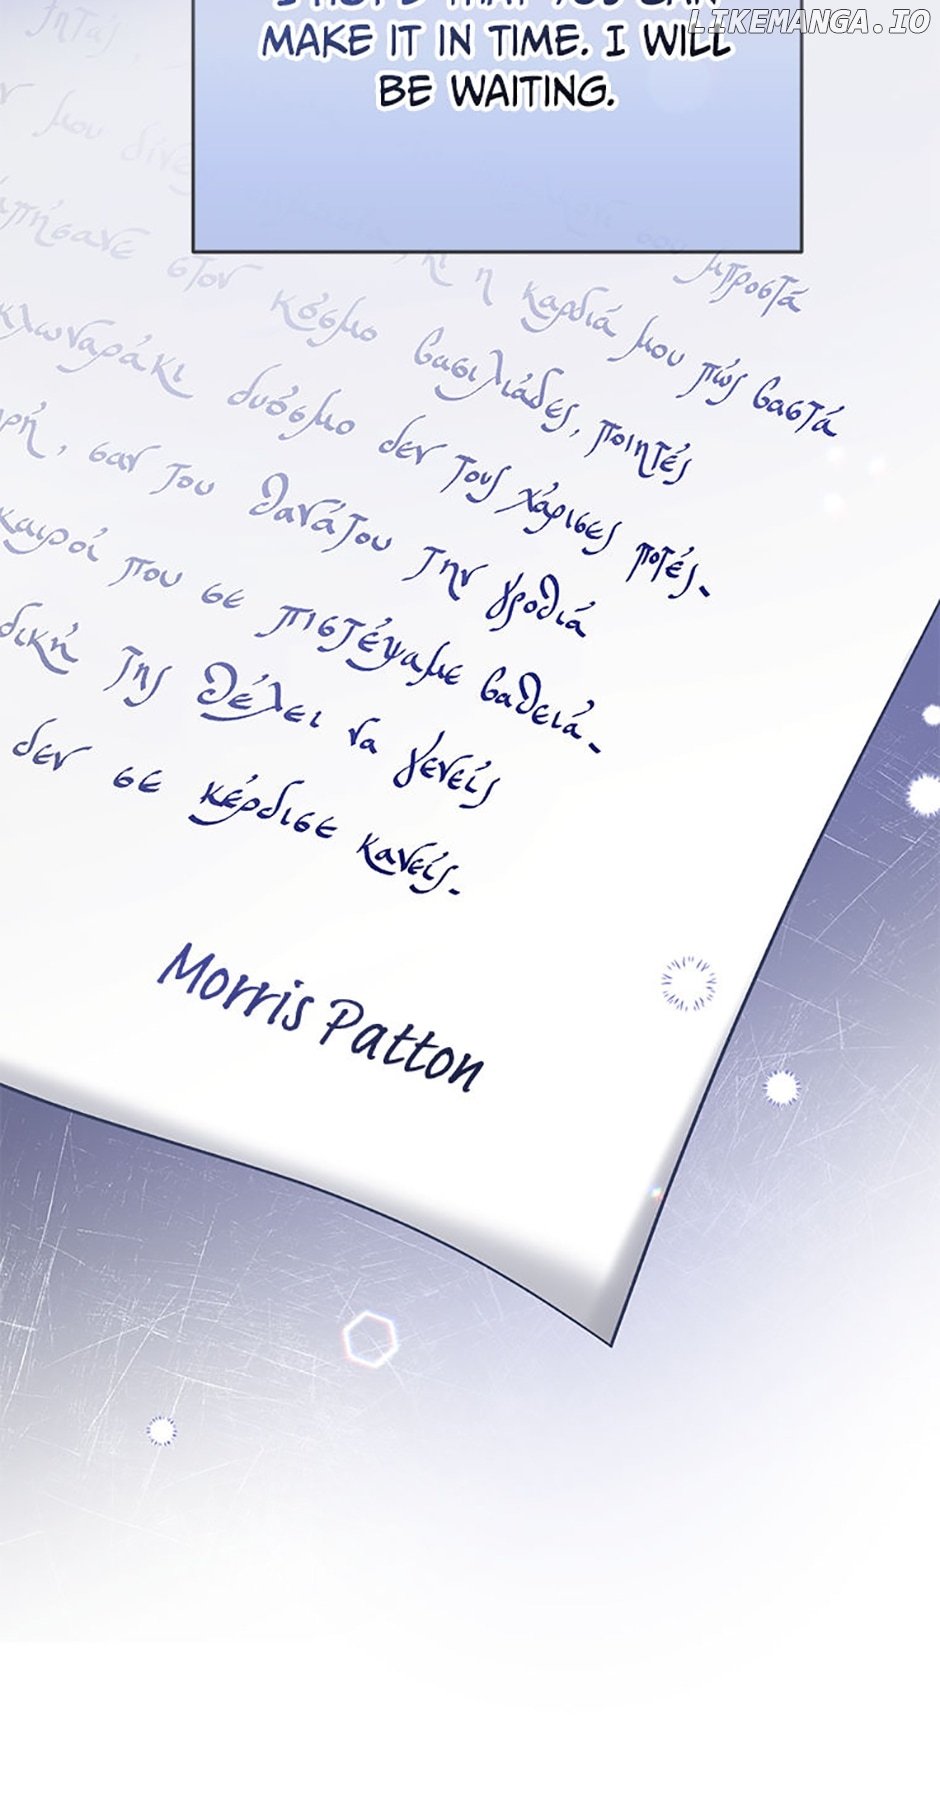 LIKEMANGA.IO
MAKE IT IN TIME. I WILL
BE WAITING.
μου
μπροστά
στον κόσμο κι η καρδιά μου πώς βαστά
κλωναράκι δυόσμο βασιλιάδες, ποιητές
σαν του θανάτου δεν τους χάρισες ποτές.
καιροί που σε πιστέψαμε την γροθιά
δική της θέλει να γενείς βαθειά.
δεν σε κέρδισε κανείς.
Morris Patton